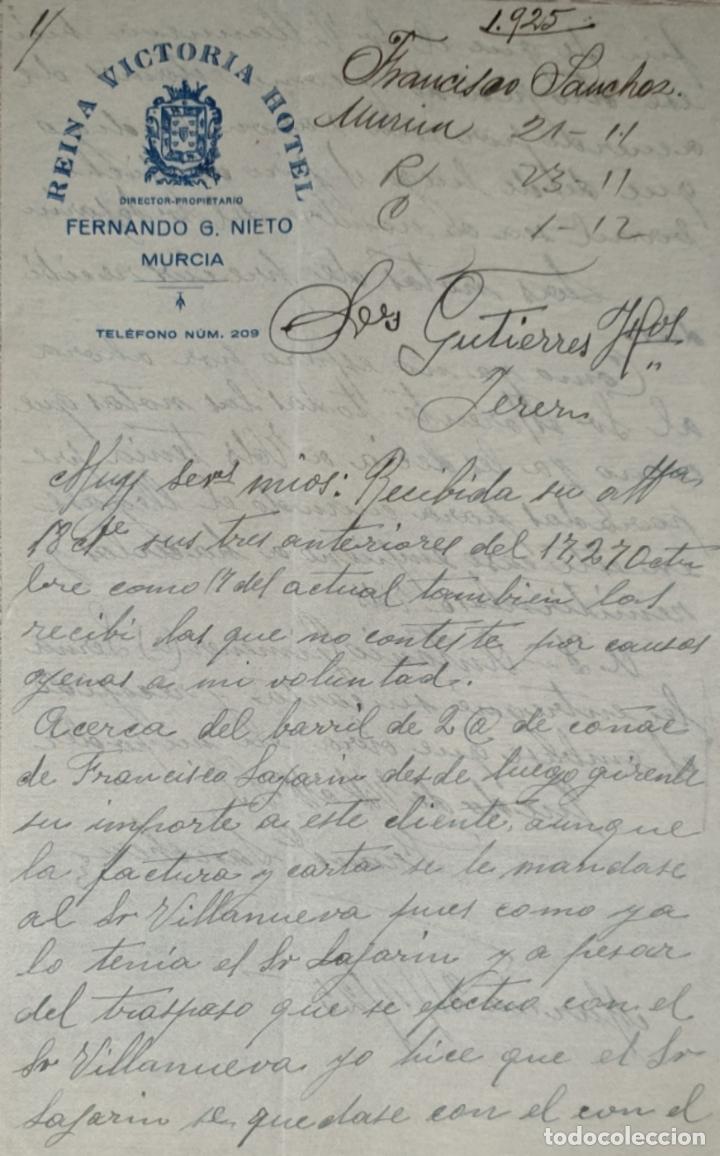 1/
1.925
REINA VICTORIA HOTEL
DIRECTOR-PROPIETARIO
FERNANDO G. NIETO
MURCIA
TELÉFONO NÚM. 209
Francisco Sanchez.
Murcia 21-11
R 23-11
C 1-12
Sres Gutierres Hos
Jerez
Muy seres mios: Recibida su atta
18 cte sus tres anteriores del 17, 27 Octu
bre como 17 del actual tambien las
recibi las que no conteste por causas
agenas a mi voluntad.
Acerca del barril de 2@ de coñac
de Francisco Lajarin desde luego girenle
su importe a este cliente, aunque
la factura y carta se le mandase
al Sr Villanueva pues como ya
lo tenia el Sr Lajarin y a pesar
del traspaso que se efectuo con el
Sr Villanueva yo hice que el Sr
Lajarin se quedase con el con el
todocoleccion